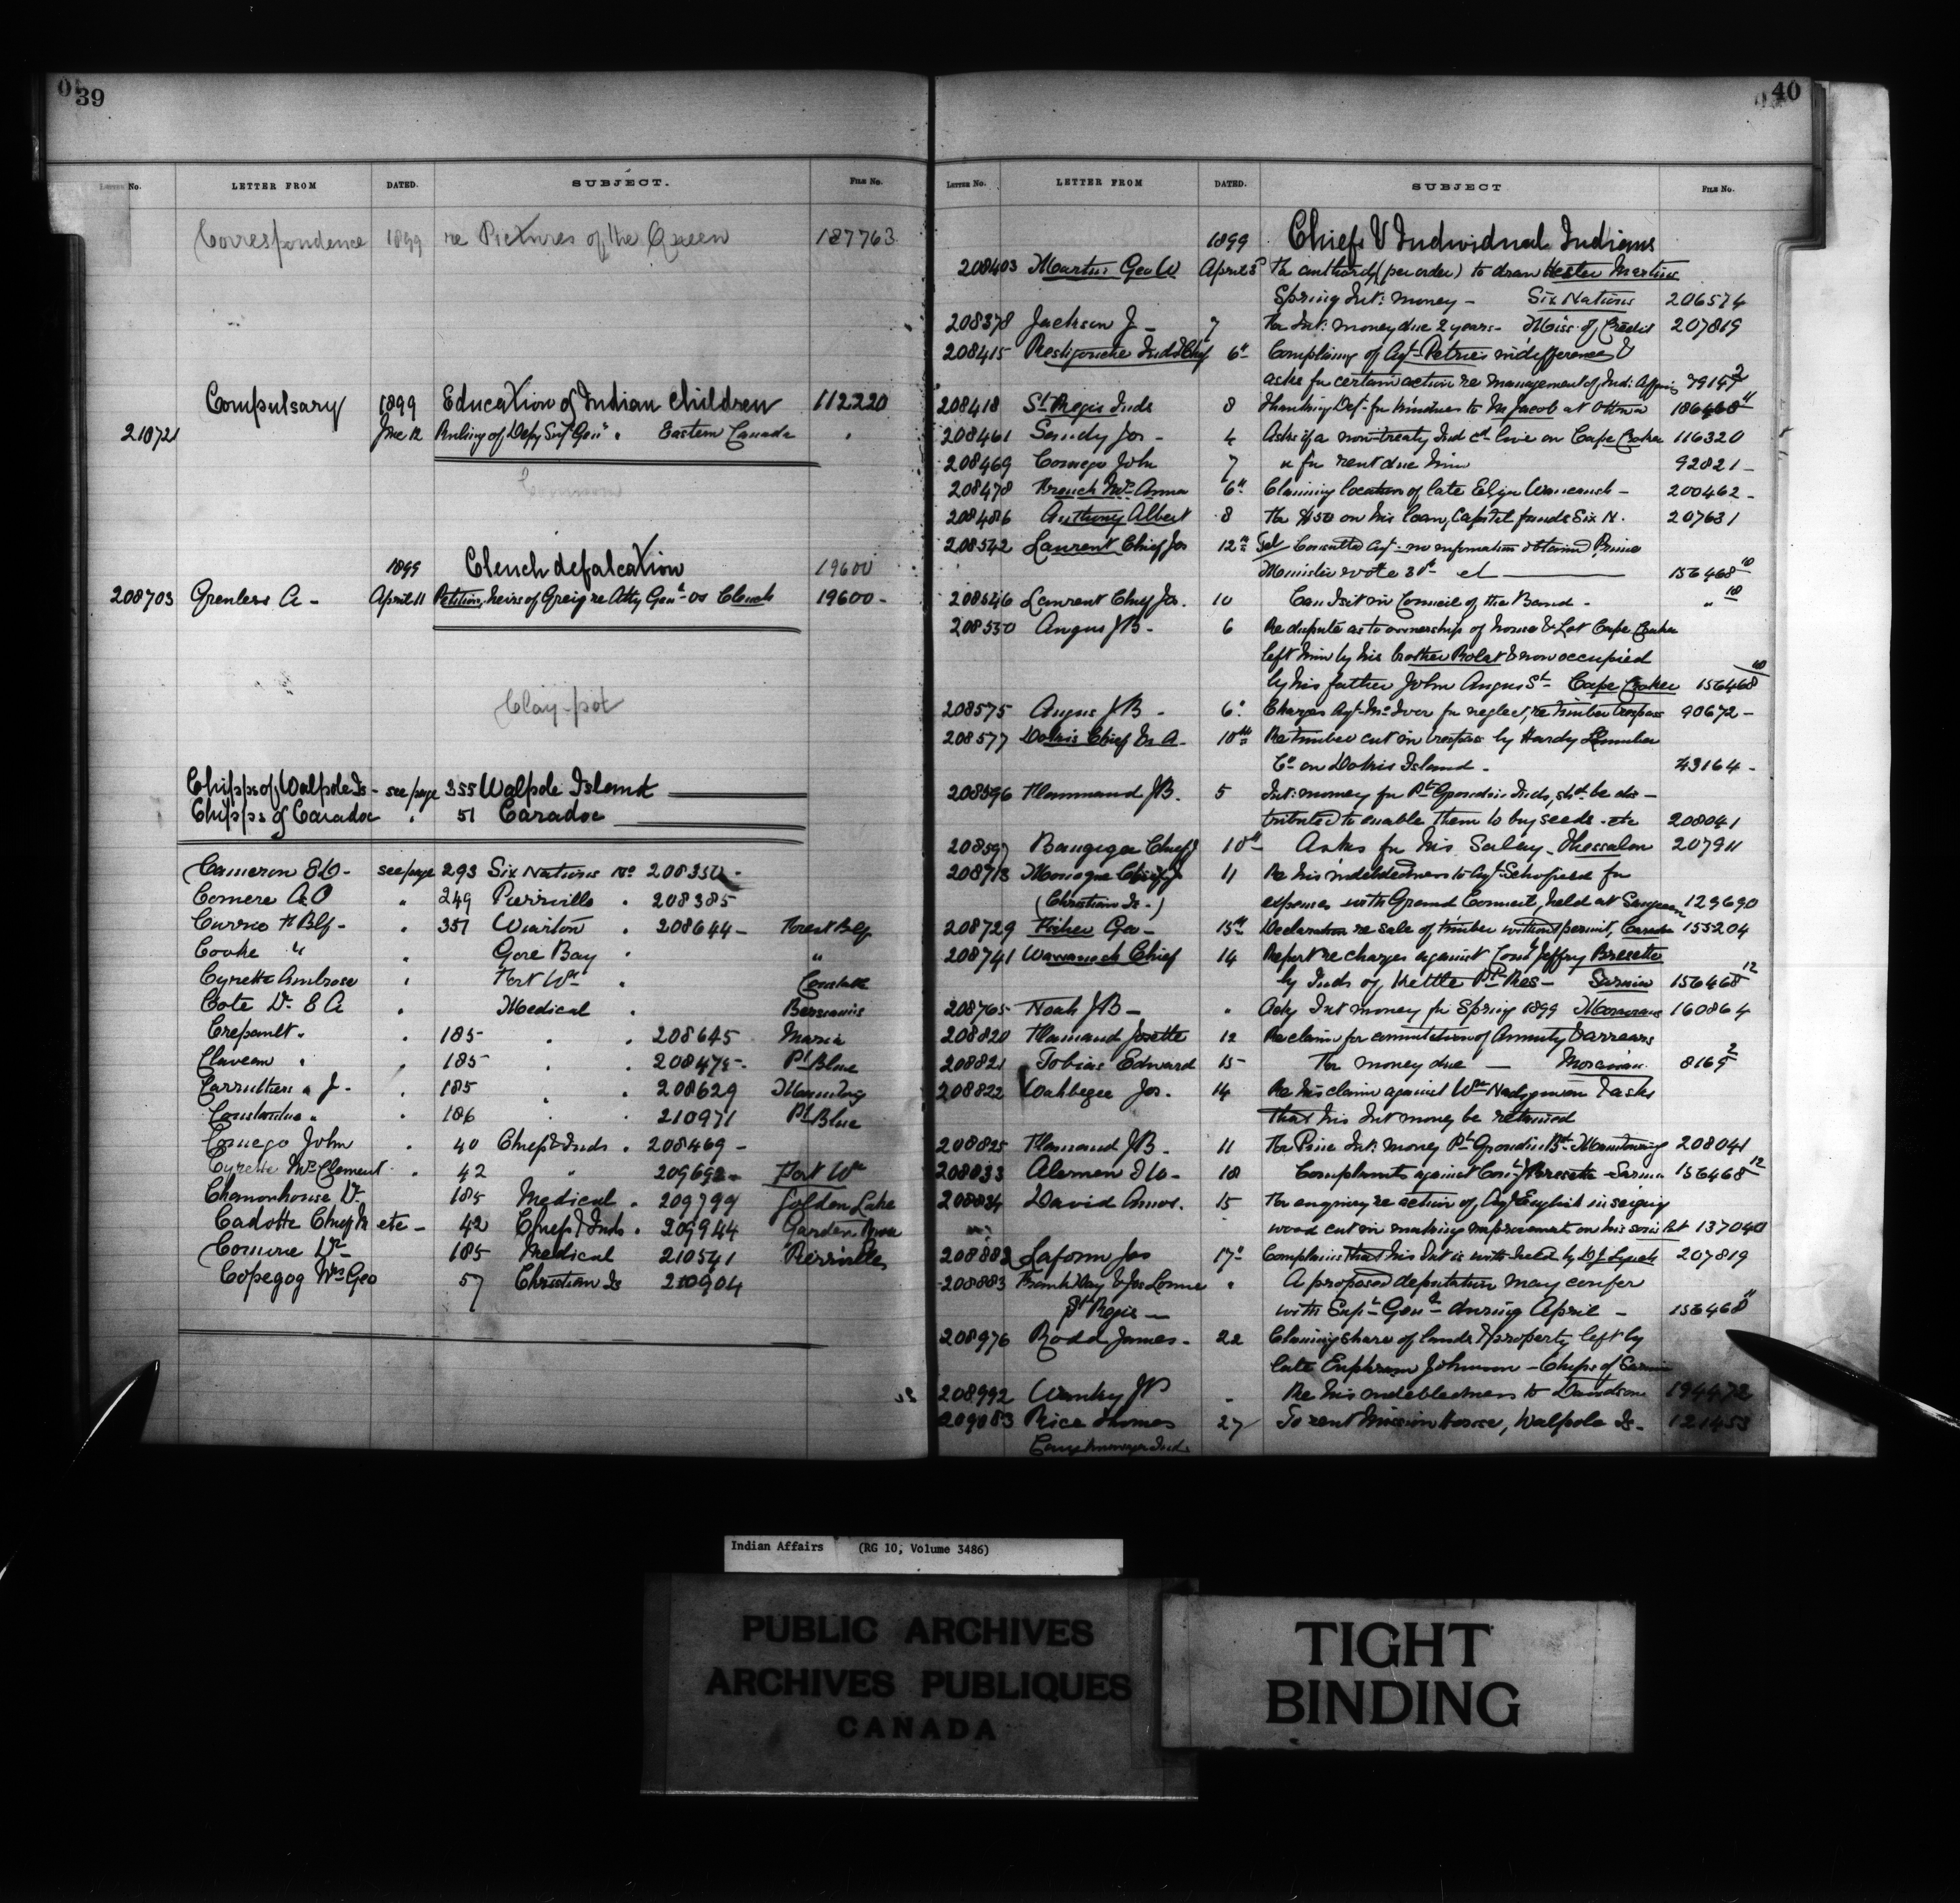 39
LETTER No. LETTER FROM DATED. SUBJECT. FILE No.
Correspondence 1899 re Pictures of the Queen 187763
Compulsary 1899 Education of Indian Children 112220
210721 June 12 Ruling of Depy Supt Genl . Eastern Canada "
1899 Clench defalcation 19600
208703 Grenless A - April 11 Petition, heirs of Greig re Atty Genl vs Clench 19600 -
Clay-pot
Chipps of Walpole Is - see page 355 Walpole Island
Chipps of Caradoc " 51 Caradoc
Cameron E.D. - see page 293 Six Nations No 208350 -
Comere A.O " 249 Pierrville . 208385
Currie H Blf - . 351 Wiarton . 208644 - Forest Blf
Cooke " . Gore Bay . "
Cyrette Ambrose . Fort Wm .
Cote Dr E A . Medical . Bersimis
Crepault " . 185 - . . 208645 Maria
" . 185 - . . 208475 - Pt Blue
Carruthers " J. . 185 . . 208629
Constantine " . 186 . . 210971 Pt Blue
Comego John . 40 Chiefs & Inds . 208469 -
Cyrette Mrs Clement . 42 " Fort Wm
Dr - 185 Medical . 209799 Golden Lake
Cadotte Chief etc - 42 Chiefs & Inds . 209944 Garden River
Comire Dr - 185 Medical 210541 Pierrville
Copegog Mrs Geo 57 Christian Is 210904
40
LETTER No. LETTER FROM DATED. SUBJECT FILE No.
1899 Chiefs & Individual Indians
208403 Martin Geo W April 5 For authority (per order) to draw Hester Martins
Spring Int: money - Six Nations 206574
208378 Jackson J - 7 For Int: money due 2 years - Miss. of Credit 207819
208415 Restigouche Inds & Chief 6" Complaining of Agt Petrie's indifference &
asks for certain action re management of Ind: Affairs
208418 St Regis Inds 8 Thanking Dept for kindness to Mr Jacob at Ottawa 156468 11
208461 Sandy Jos - 4 Asks if a non-treaty Ind cd live on Cape Croker 116320
208469 Comego John 7 " for rent due him 92821 -
208478 Mrs Anna 6" Claiming location of late Elijah 200462 -
208486 Anthony Albert 8 For $50 on his loan, Capital funds Six N. 207631
208542 Laurent Chief Jos 12" Tel Consulted Agt - no information obtained, Prime
Minister wrote 156468 10
208546 Laurent Chief Jos. 10 Can I sit in Council of the Band - " 10
208550 Angus J B - 6 Re dispute as to ownership of house & Lot Cape Croker
left him by his brother Robt & now occupied
by his father John Angus Sr - Cape Croker 156468 10
208575 Angus J B - 6" Charges Agt McIver for neglect, re timber trespass 90672 -
208577 Dokis Chief M A - 10th Re timber cut in trespass by Hardy Lumber
Co on Dokis Island - 43164 -
208596 Hammand J B. 5 Int: money for Pt Grondin Inds, shd be dis -
tributed to enable them to buy seeds - etc 208041
208597 Chief 10th Asks for his Salary - Thessalon 207911
208713 Monague Chief 11 Re his indebtedness to Agt Schofield for
(Christian Is.) expenses with Grand Council, held at Saugeen 129690
208729 Fisher Geo - 13th Declaration re sale of timber without permit, Caradoc 155204
208741 Wawanosh Chief 14 Report re charges against Conl Jeffry Bresette
by Inds of Kettle Pt Res - Sarnia 156468 12
208765 Noah J B - " Asks Int money for Spring 1899 Moravians 160864
208820 Hamand Josette 12 Re claim for commutation of Annuity & arrears
208821 Tobias Edward 15 - For money due - Moravian 8169 2
208822 Wahbegee Jos. 14 Re his claim against Wm & asks
that his Int money be retained
208825 Hamand J B. 11 For Pine Int: money Pt Grondin Bd - Manitowaning 208041
10 Complaints against Conl J Bresette - Sarnia 156468 12
David Amos. 15 For enquiry re action of Agt English in seizing
wood cut in making improvements on his son's lot 137040
208882 Laform Jos 17" Complains that his Int is withheld by 207819
208883 Frank Day & Jos Lorne " A proposed deputation may confer
St Regis - with Supt Genl during April - 156468 11
208976 Rodd James - 22 Claiming share of lands & property left by
late Ephraim Johnson - Chips of Sarnia
208992 J B - Re his indebtedness to Davidson 194472
209083 Rice Thomas 27 To rent Mission House, Walpole Is - 121453
Caughnawaga Ind.
Indian Affairs (RG 10, Volume 3486)
PUBLIC ARCHIVES
ARCHIVES PUBLIQUES
CANADA
TIGHT
BINDING